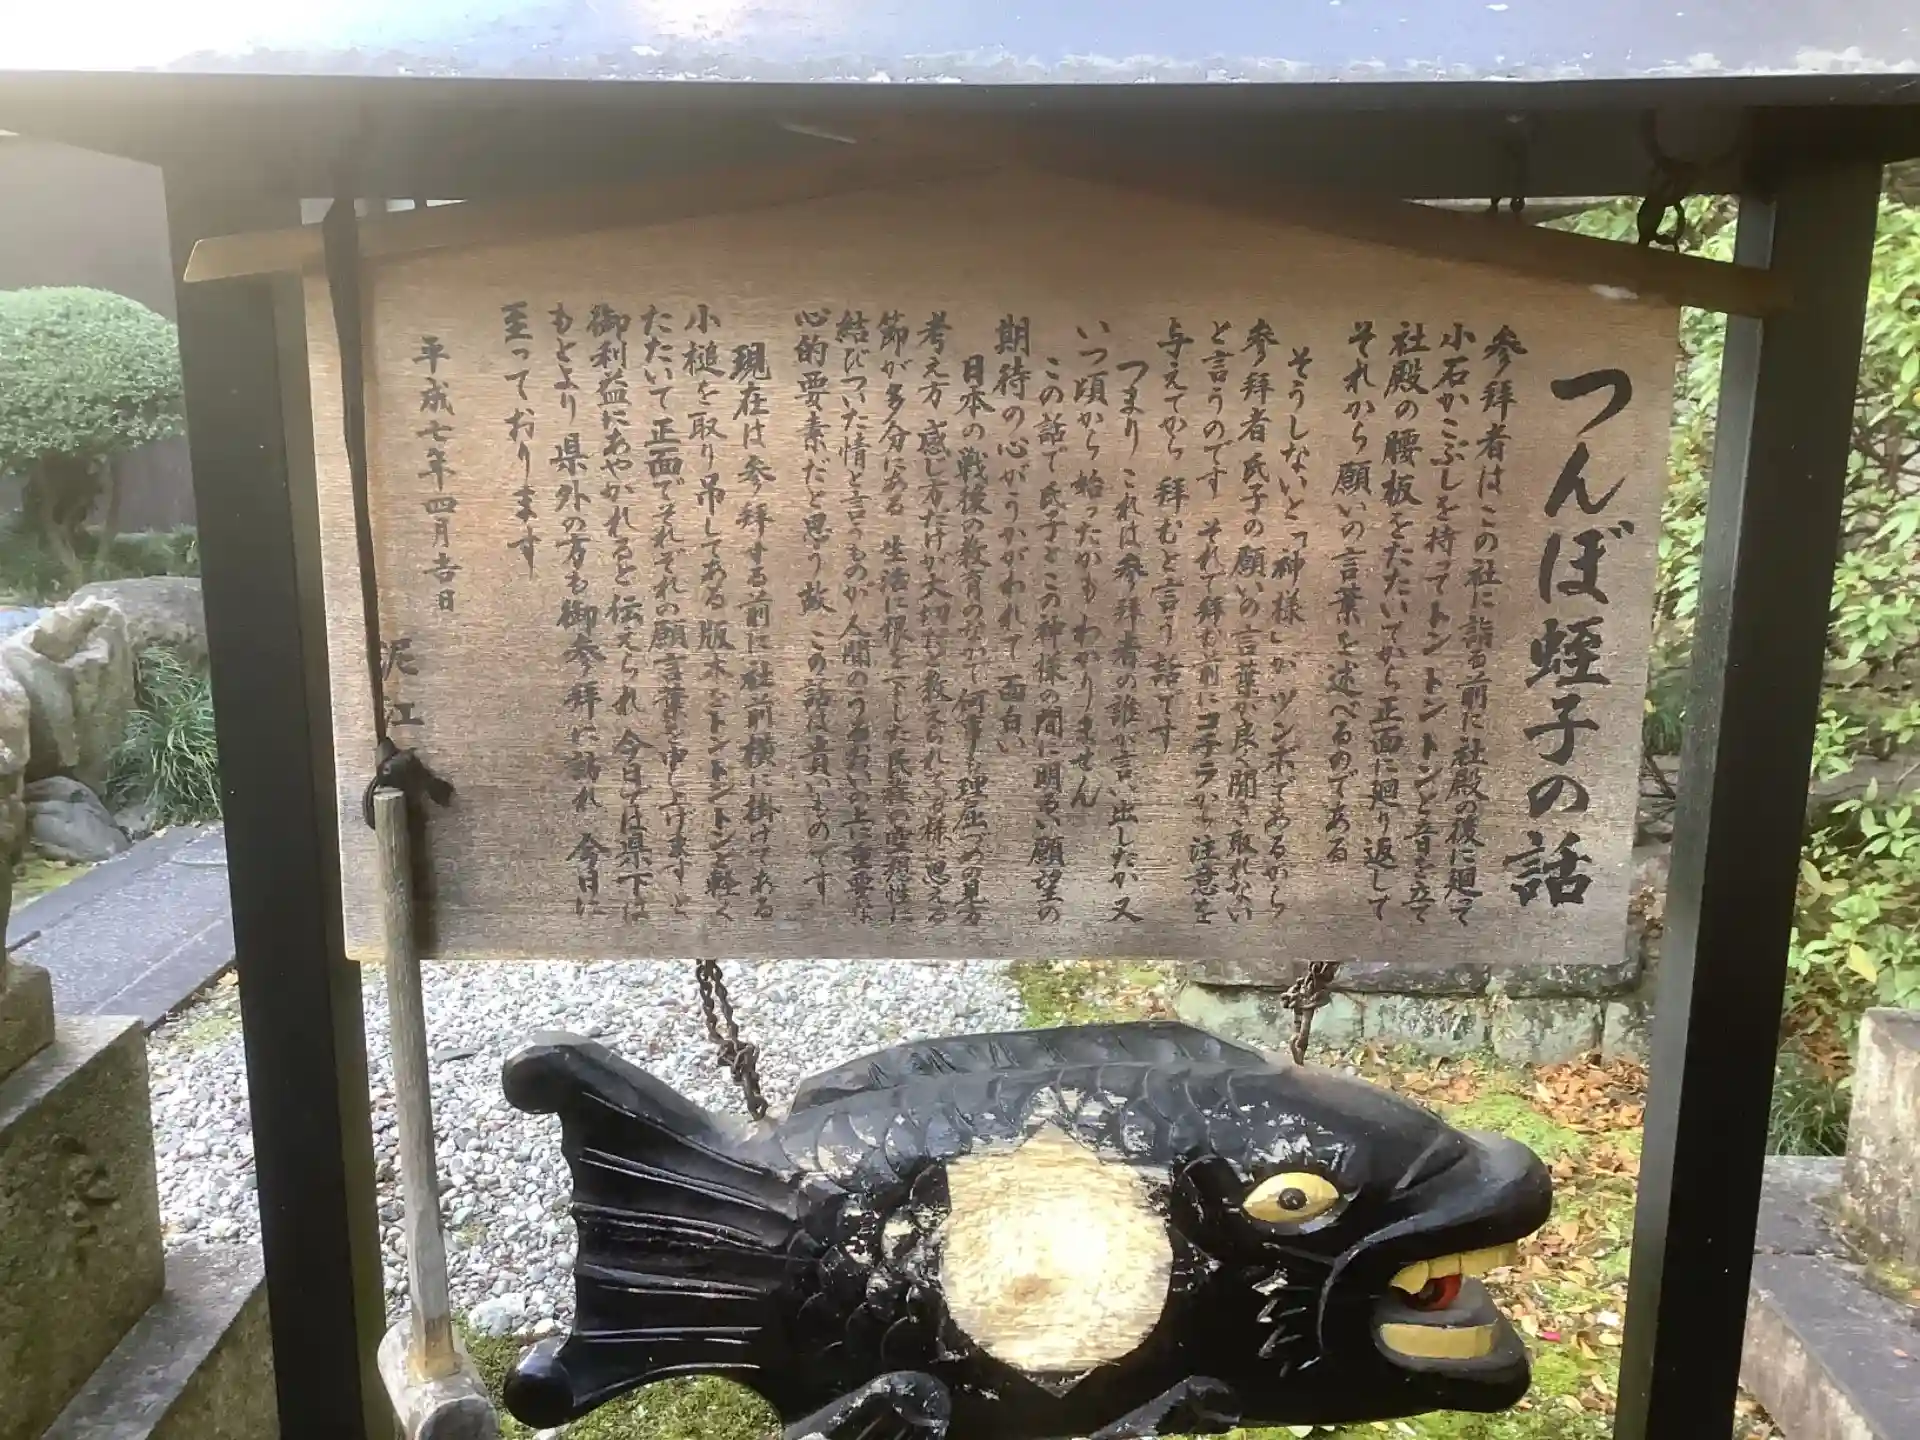 つんぼ蛭子の話
参拝者はこの社に詣る前に社殿の後に廻って
小石かこぶしを持ってトントントンと音を立て
社殿の腰板をたたいてから正面に廻り返して
それから願いの言葉を述べるのである
そうしないと「神様」がツンボであるから
参拝者氏子の願いの言葉が良く聞き取れない
と言うのです それで拝む前にコチラから注意を
与えてから 拝むと言う話です
つまり これは参拝者の誰が言い出したか又
いつ頃から始ったかもわかりません
この話で氏子とこの神様の間に明るい願望の
期待の心がうかがわれて 面白い
日本の戦後の教育のなかで 何事も理屈つめの見方
考え方 感じ方だけが大切だと教えられている様に思える
節が多分にある 生活に根を下した民族の
結びついた情と言うものが人間のうるおいの上に重要な
心的要素だと思う故 この話は貴いものです
現在は参拝する前に社前横に掛けてある
小槌を取り吊してある版木をトントントンと軽く
たたいて正面でそれぞれの願言葉を申し上げますと
御利益にあやかれると伝えられ 今日では県下は
もとより県外の方も御参拝に訪れ 今日に
至っております
平成七年四月吉日
泥江